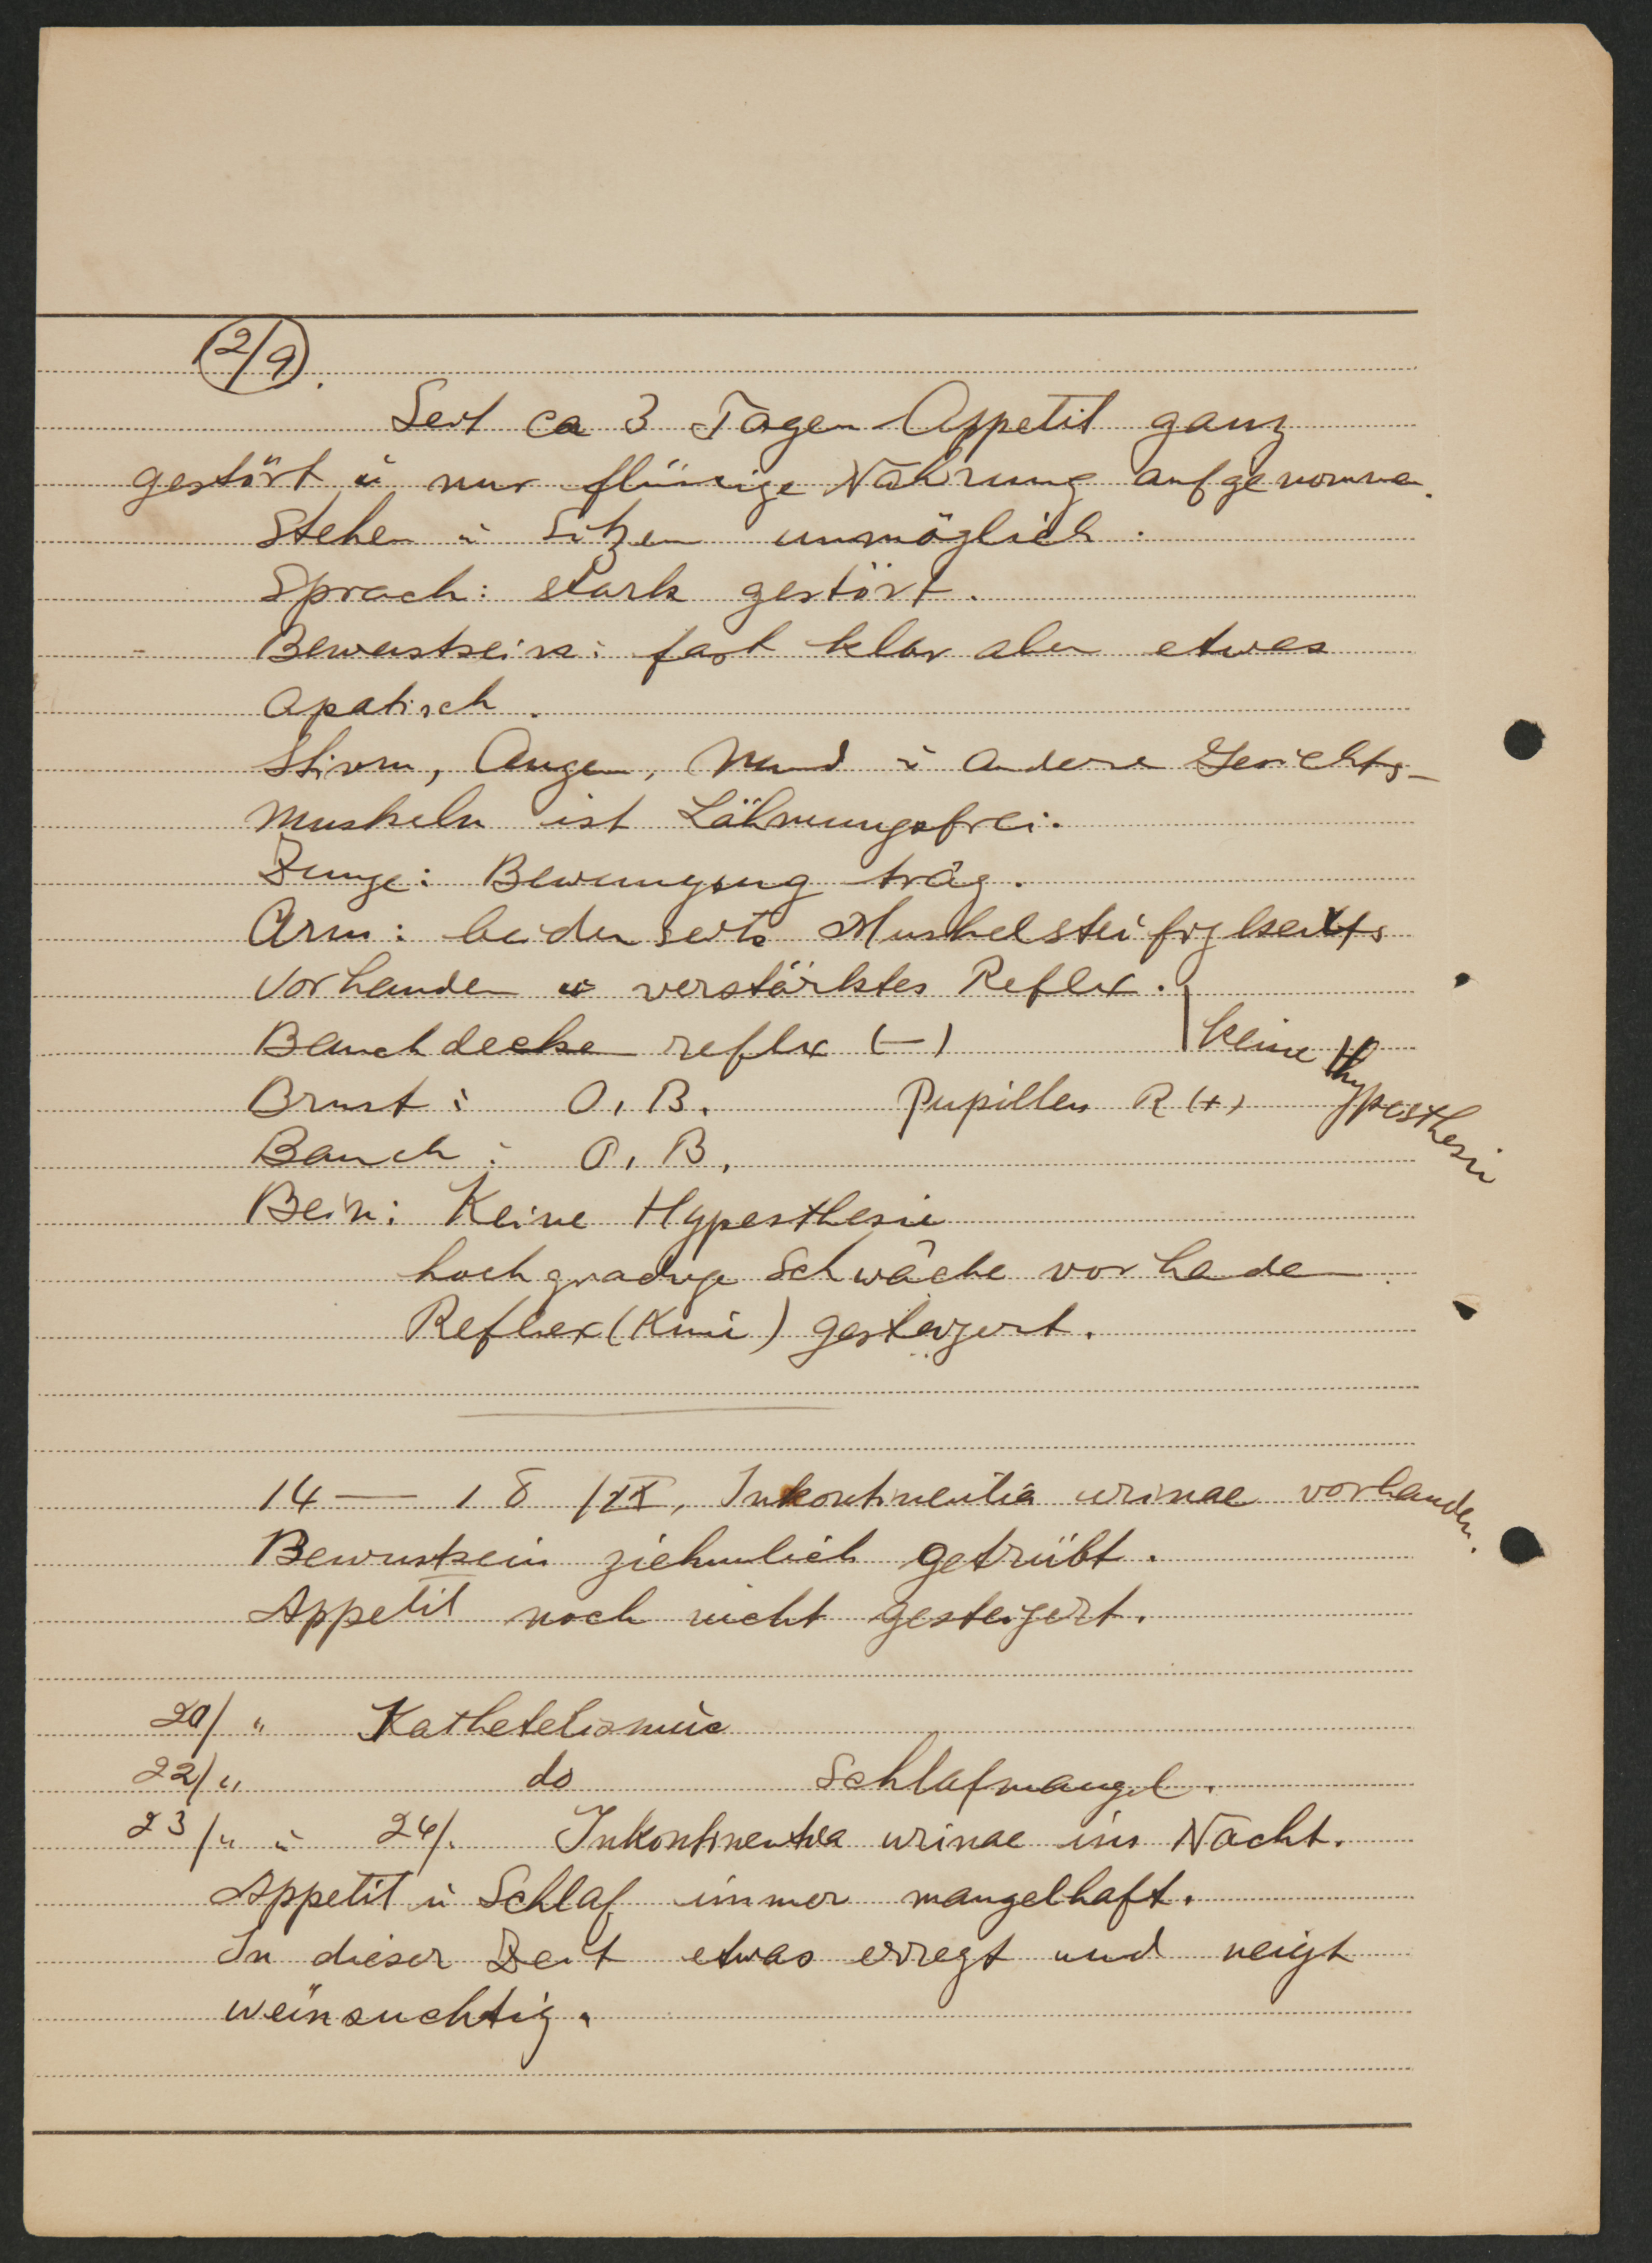 2/9.
Seit ca 3 Tagen Appetit ganz
gestört ü nur flüssige Nahrung aufgenomme.
Stehen ü Sitzen unmöglich.
Sprach: stark gestört.
Bewustsein: fast klar aber etwas
apatisch.
Stirn, Augen, Mund ü andere Gesichts-
muskeln ist Lähmungsfrei.
Zunge: träg.
Arm: beiderseits
vorhanden u verstärktes Reflex.
Bauchdecke reflex (-) | keine Hypesthesie
Brust: O. B. Pupillen R (+)
Bauch: O. B.
Bein: Keine Hypesthesie
hochgradige Schwäche vorhanden
Reflex (Knie) gesteigert.
14 — 18 /IX, Inkontinentia urinae vorhanden.
Bewustsein ziehmlich getrübt.
Appetit noch nicht gesteigert.
20/ " Kathetelismus
22/ " do Schlafmangel.
23/ " ü 24/. Inkontinentia urinae ins Nacht.
Appetit ü Schlaf immer mangelhaft.
In dieser Zeit etwas erregt und neigt
weinsuchtig.